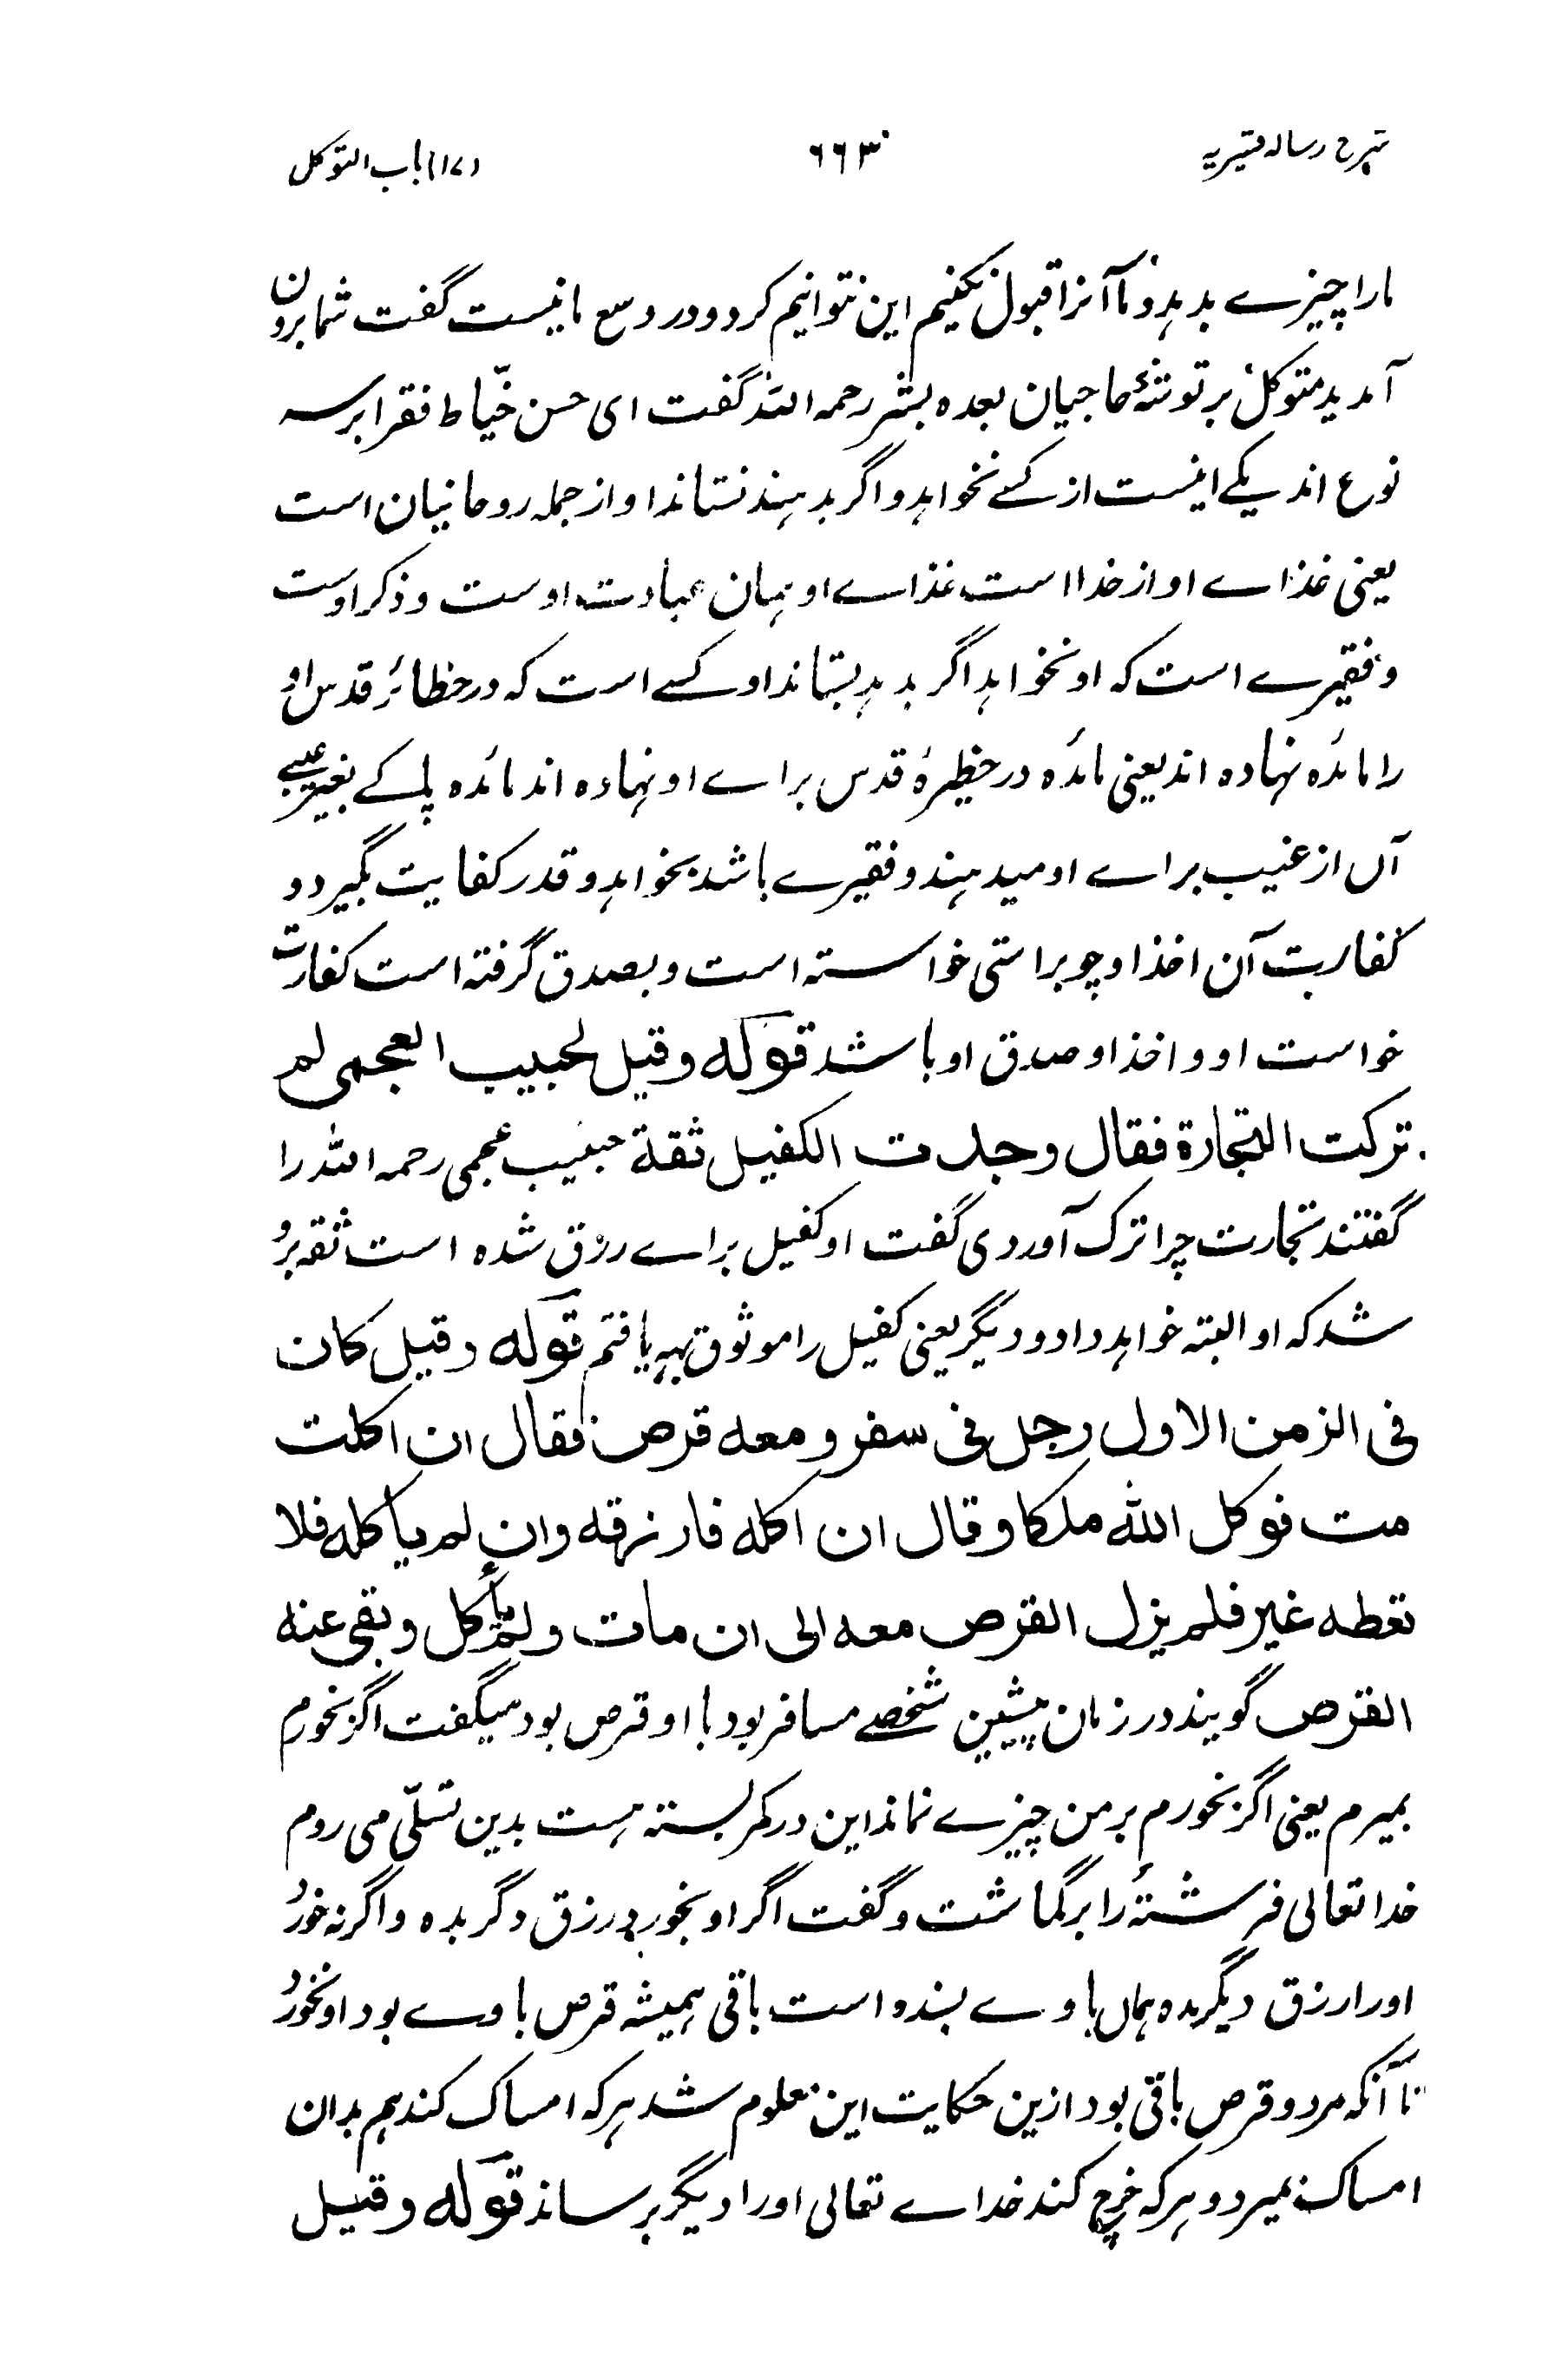 شرح رسالہ قشیریہ ۶۶۳ (۱۷) باب التوکل
مارا چیزے بدہد و ما آنرا قبول نکنیم این نتوانیم کرد و در وسع ما نیست گفت شما برون
آمدید متوکل بر توشۂ حاجیان بعدہ بشر رحمہ اللہ گفت ای حسن خیّاط فقرا بر سہ
نوع اند یکے اینست از کسے نخواہد و اگر بدہند نستاند او از جملہ روحانیان است
یعنی غذاے او از خدا است غذاے او ہمان عبادت اوست و ذکر اوست
و فقیرے است کہ او نخواہد اگر بدہد بستاند او کسے است کہ در حظائر قدس او
را مائدہ نہادہ اند یعنی مائدہ در حظیرۂ قدس براے او نہادہ اند مائدہ پاکے بغیر عیبے
آں از غیب براے او میدہند و فقیرے باشد بخواہد و قدر کفایت بگیرد و
کفارت آن اخذ او چو براستی خواستہ است و بصدق گرفتہ است کفارت
خواست او و اخذ او صدق او باشد قولہ وقیل لحبیب العجمی لم
ترکت التجارة فقال وجدت الکفیل ثقة حبیب عجمی رحمہ اللہ را
گفتند تجارت چرا ترک آوردی گفت او کفیل براے رزق شدہ است ثقہ برو
شد کہ او البتہ خواہد داد و دیگر یعنی کفیل را موثوق بہ یافتم قولہ وقیل کان
فی الزمن الاول رجل فی سفر و معه قرص فقال ان اکلت
مت فوکل الله ملکا وقال ان اکله فارزقه وان لم یأکله فلا
تعطه غیر فلم یزل القرص معه الی ان مات ولم یأکل وبقی عنه
القرص گویند در زمان پیشین شخصے مسافر بود با او قرص بود میگفت اگر بخورم
بمیرم یعنی اگر بخورم بر من چیزے نماند این در کمر بستہ ہست بدین تسلّی می روم
خدا تعالی فرشتۂ را برگماشت و گفت اگر او بخورد رزق دگر بدہ و اگر نہ خورد
اورا رزق دیگر بدہ ہماں با وے بسندہ است باقی ہمیشہ قرص با وے بود او نخورد
تا آنکہ مرد و قرص باقی بود ازین حکایت این معلوم شد ہر کہ امساک کند ہم بدان
امساک بمیرد و ہر کہ خرچ کند خداے تعالی اورا دیگر برساند قولہ وقیل